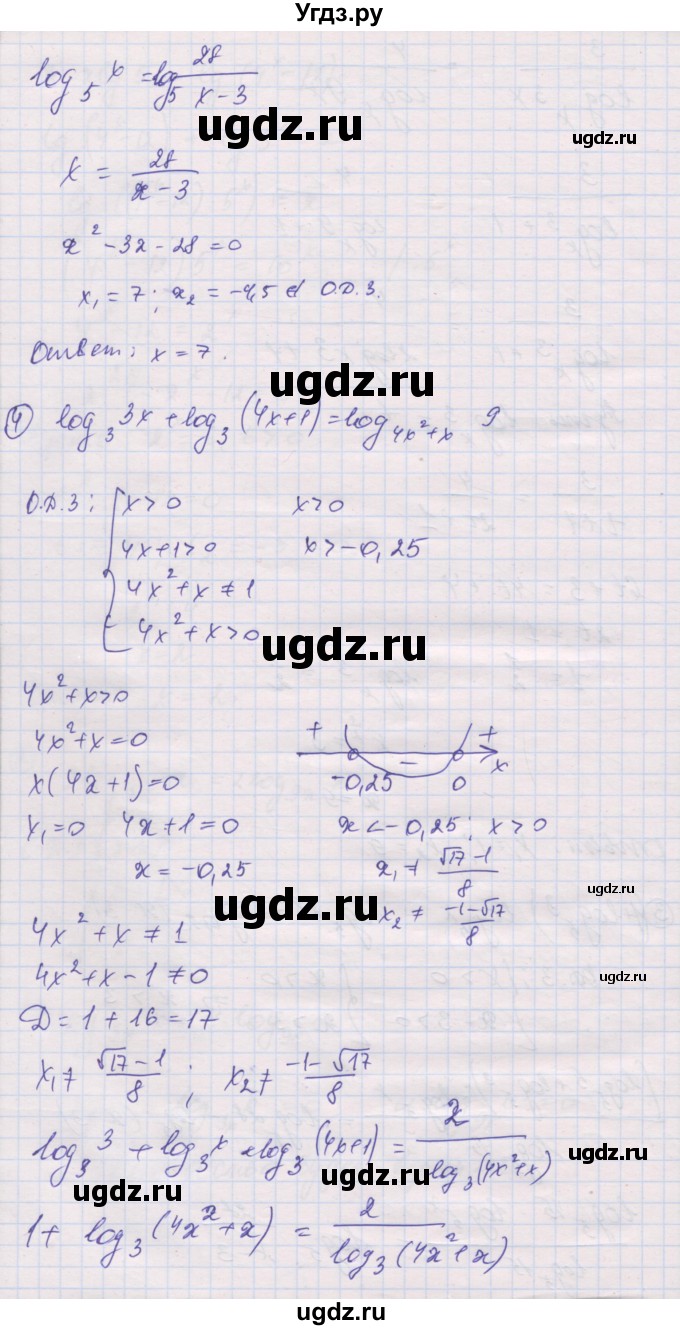 Угдз.ру
log₅ x = log₅ 28/(x − 3)
ugdz.ru
ugdz.ru
x = 28/(x − 3)
x² − 3x − 28 = 0
x₁ = 7; x₂ = −4,5 ∉ О.Д.З.
Ответ: x = 7.
ugdz.ru
④ log₃ 3x + log₃ (4x+1) = log₄ₓ²₊ₓ 9
О.Д.З: { x > 0    x > 0
4x+1 > 0    x > −0,25
4x² + x ≠ 1
4x² + x > 0
ugdz.ru
4x² + x > 0
4x² + x = 0    + − +
x(4x+1) = 0    −0,25    0    x
x₁ = 0    4x + 1 = 0    x < −0,25; x > 0
x = −0,25    x₁ ≠ (√17 − 1)/8
ugdz.ru
ugdz.ru
4x² + x ≠ 1    x₂ ≠ (−1 − √17)/8
4x² + x − 1 ≠ 0
ugdz.ru
D = 1 + 16 = 17
x₁ ≠ (√17 − 1)/8; x₂ ≠ (−1 − √17)/8
log₃ 3 + log₃ x + log₃ (4x+1) = 2/log₃(4x²+x)
ugdz.ru
ugdz.ru
1 + log₃ (4x² + x) = 2/log₃ (4x² + x)
ugdz.ru
ugdz.ru